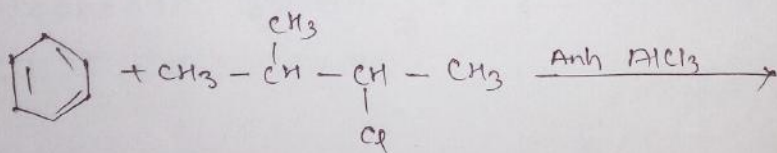 CH3
+ CH3 - CH - CH - CH3 Anh AlCl3
Cl